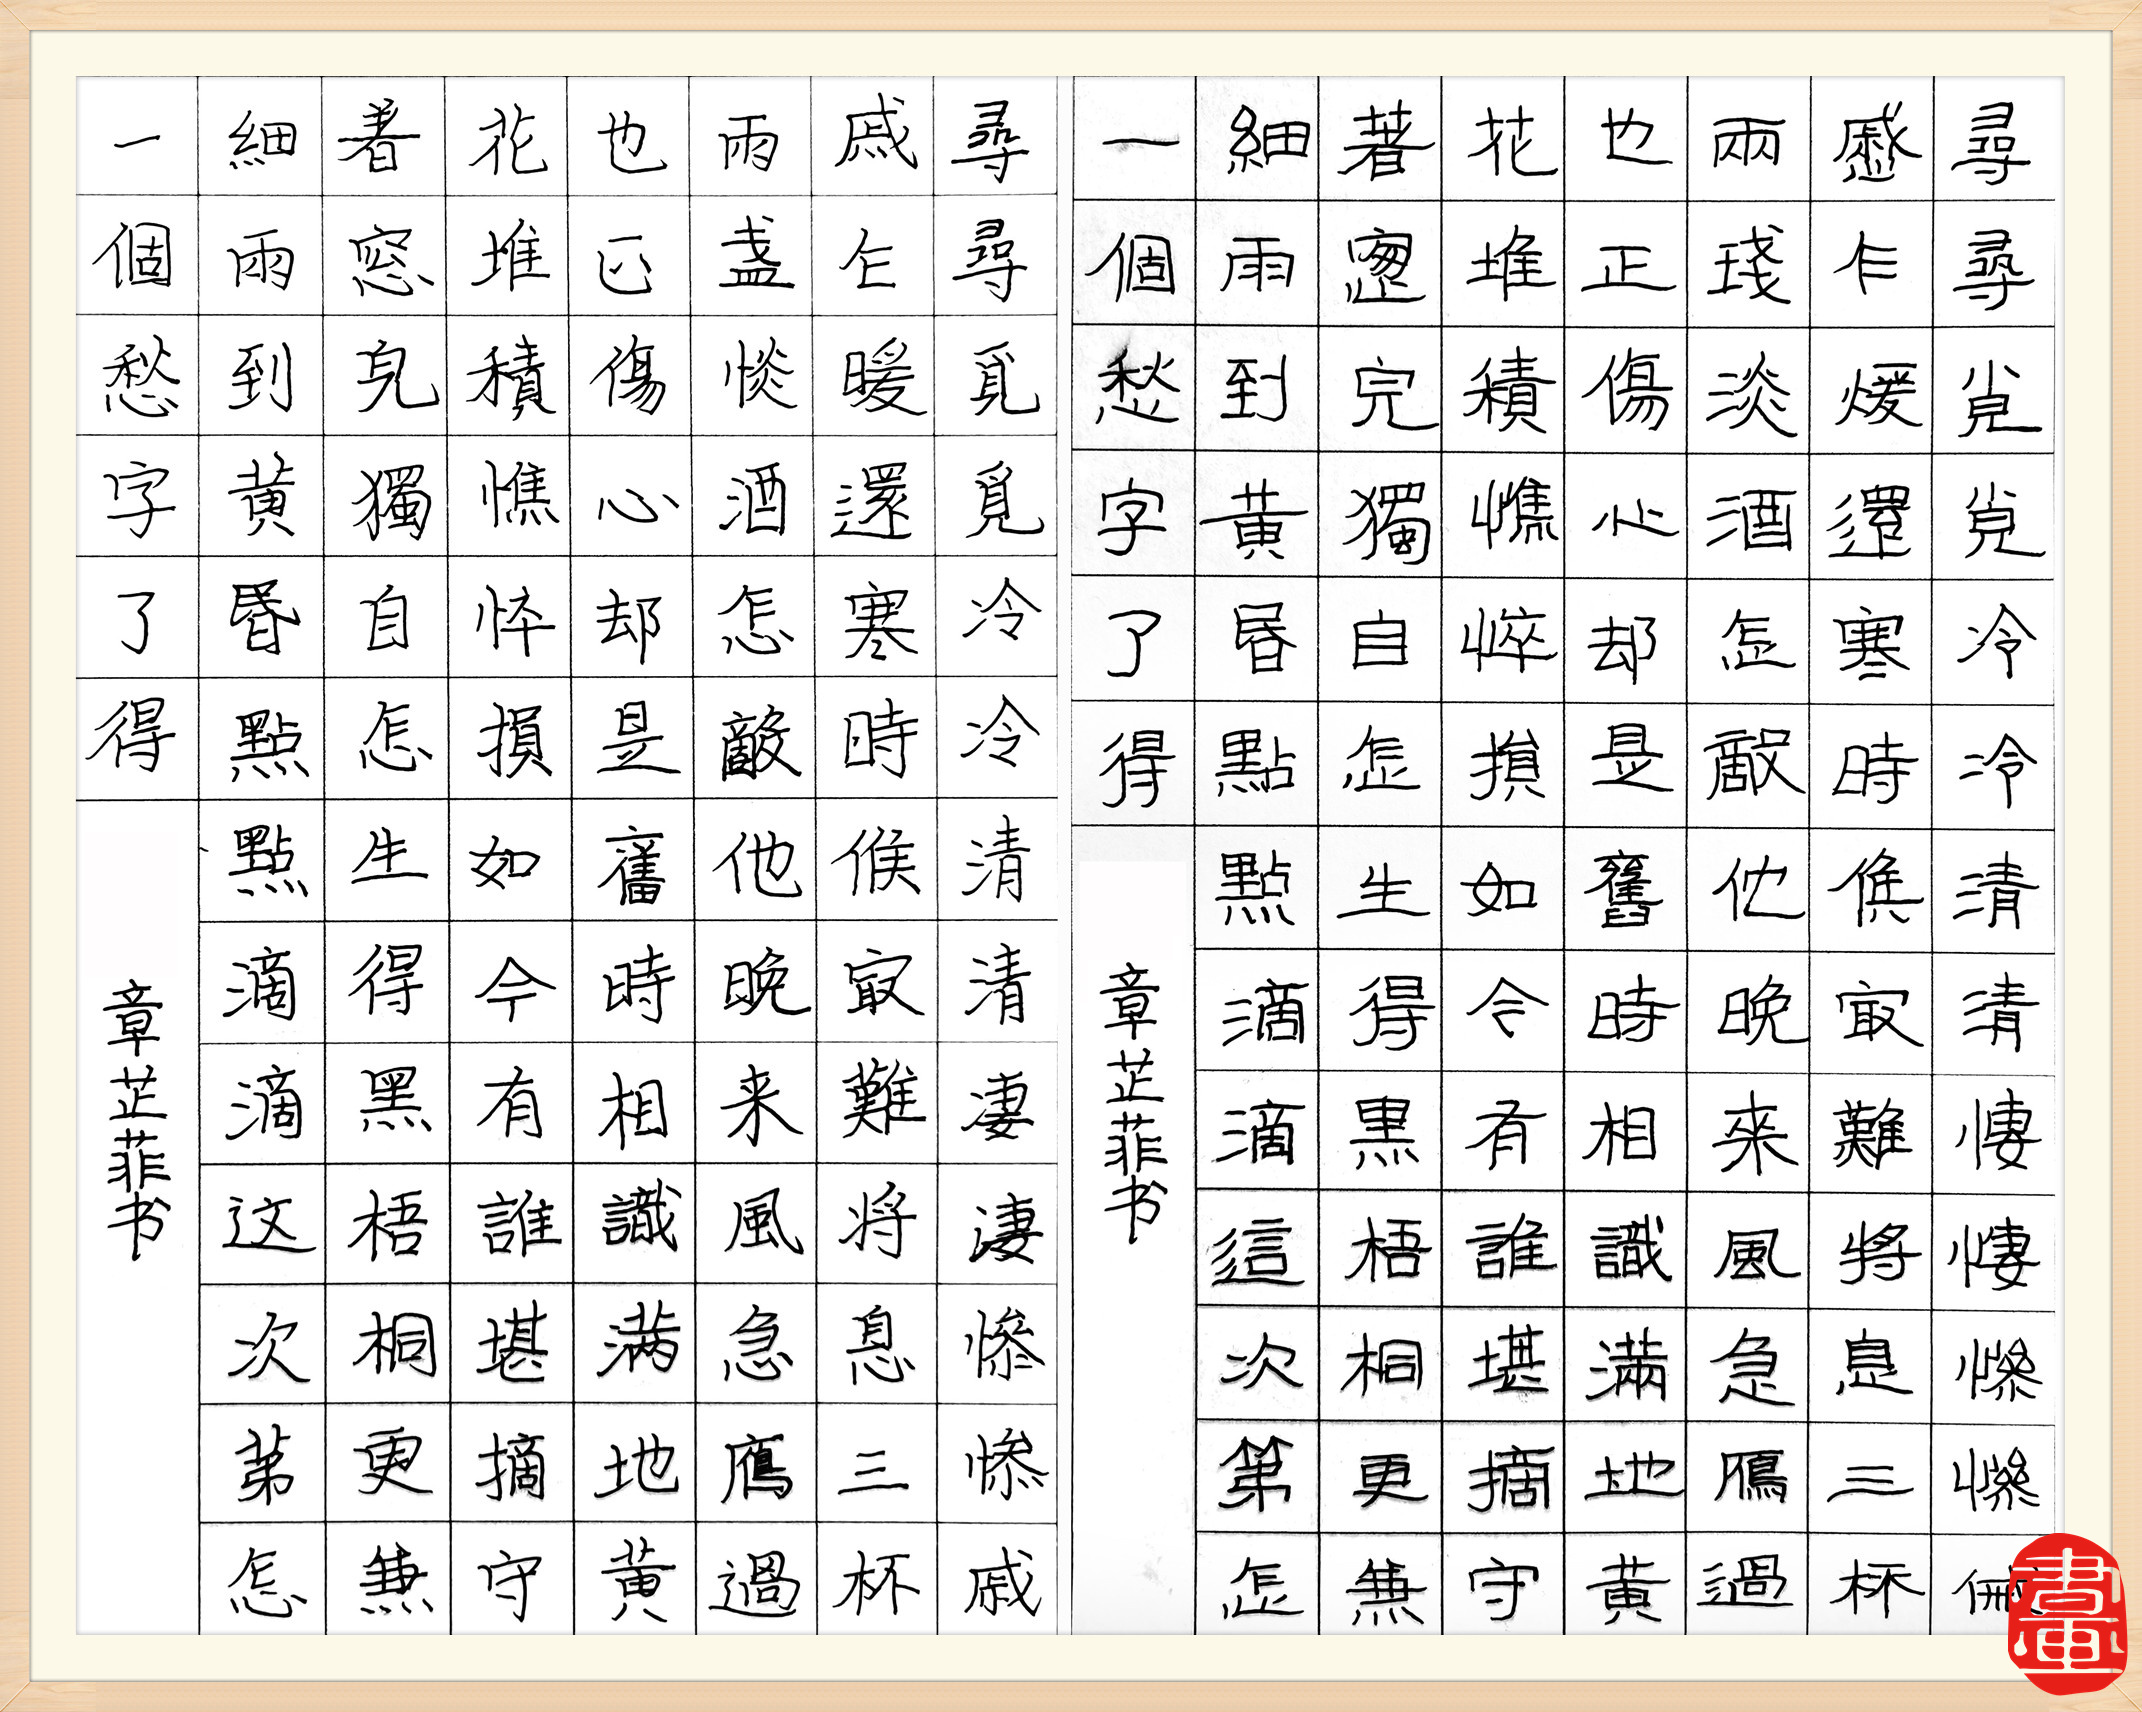 尋尋覓覓冷冷清清悽悽慘慘
慼乍煖還寒時候㝡難將息三杯
兩琖淡酒怎敵他晚來風急鴈過
也正傷心却是舊時相識滿地黃
花堆積憔悴損如今有誰堪摘守
著窻兒獨自怎生得黑梧桐更兼
細雨到黃昏點點滴滴這次第怎
一個愁字了得
章芷菲书
尋尋覓覓冷冷清清凄凄慘慘戚
戚乍暖還寒時候㝡難将息三杯
兩盞惔酒怎敵他晚来風急鴈過
也正傷心却是舊時相識满地黃
花堆積憔悴損如今有誰堪摘守
着窓兒獨自怎生得黑梧桐更兼
細雨到黃昏點點滴滴这次第怎
一個愁字了得
章芷菲书
畫